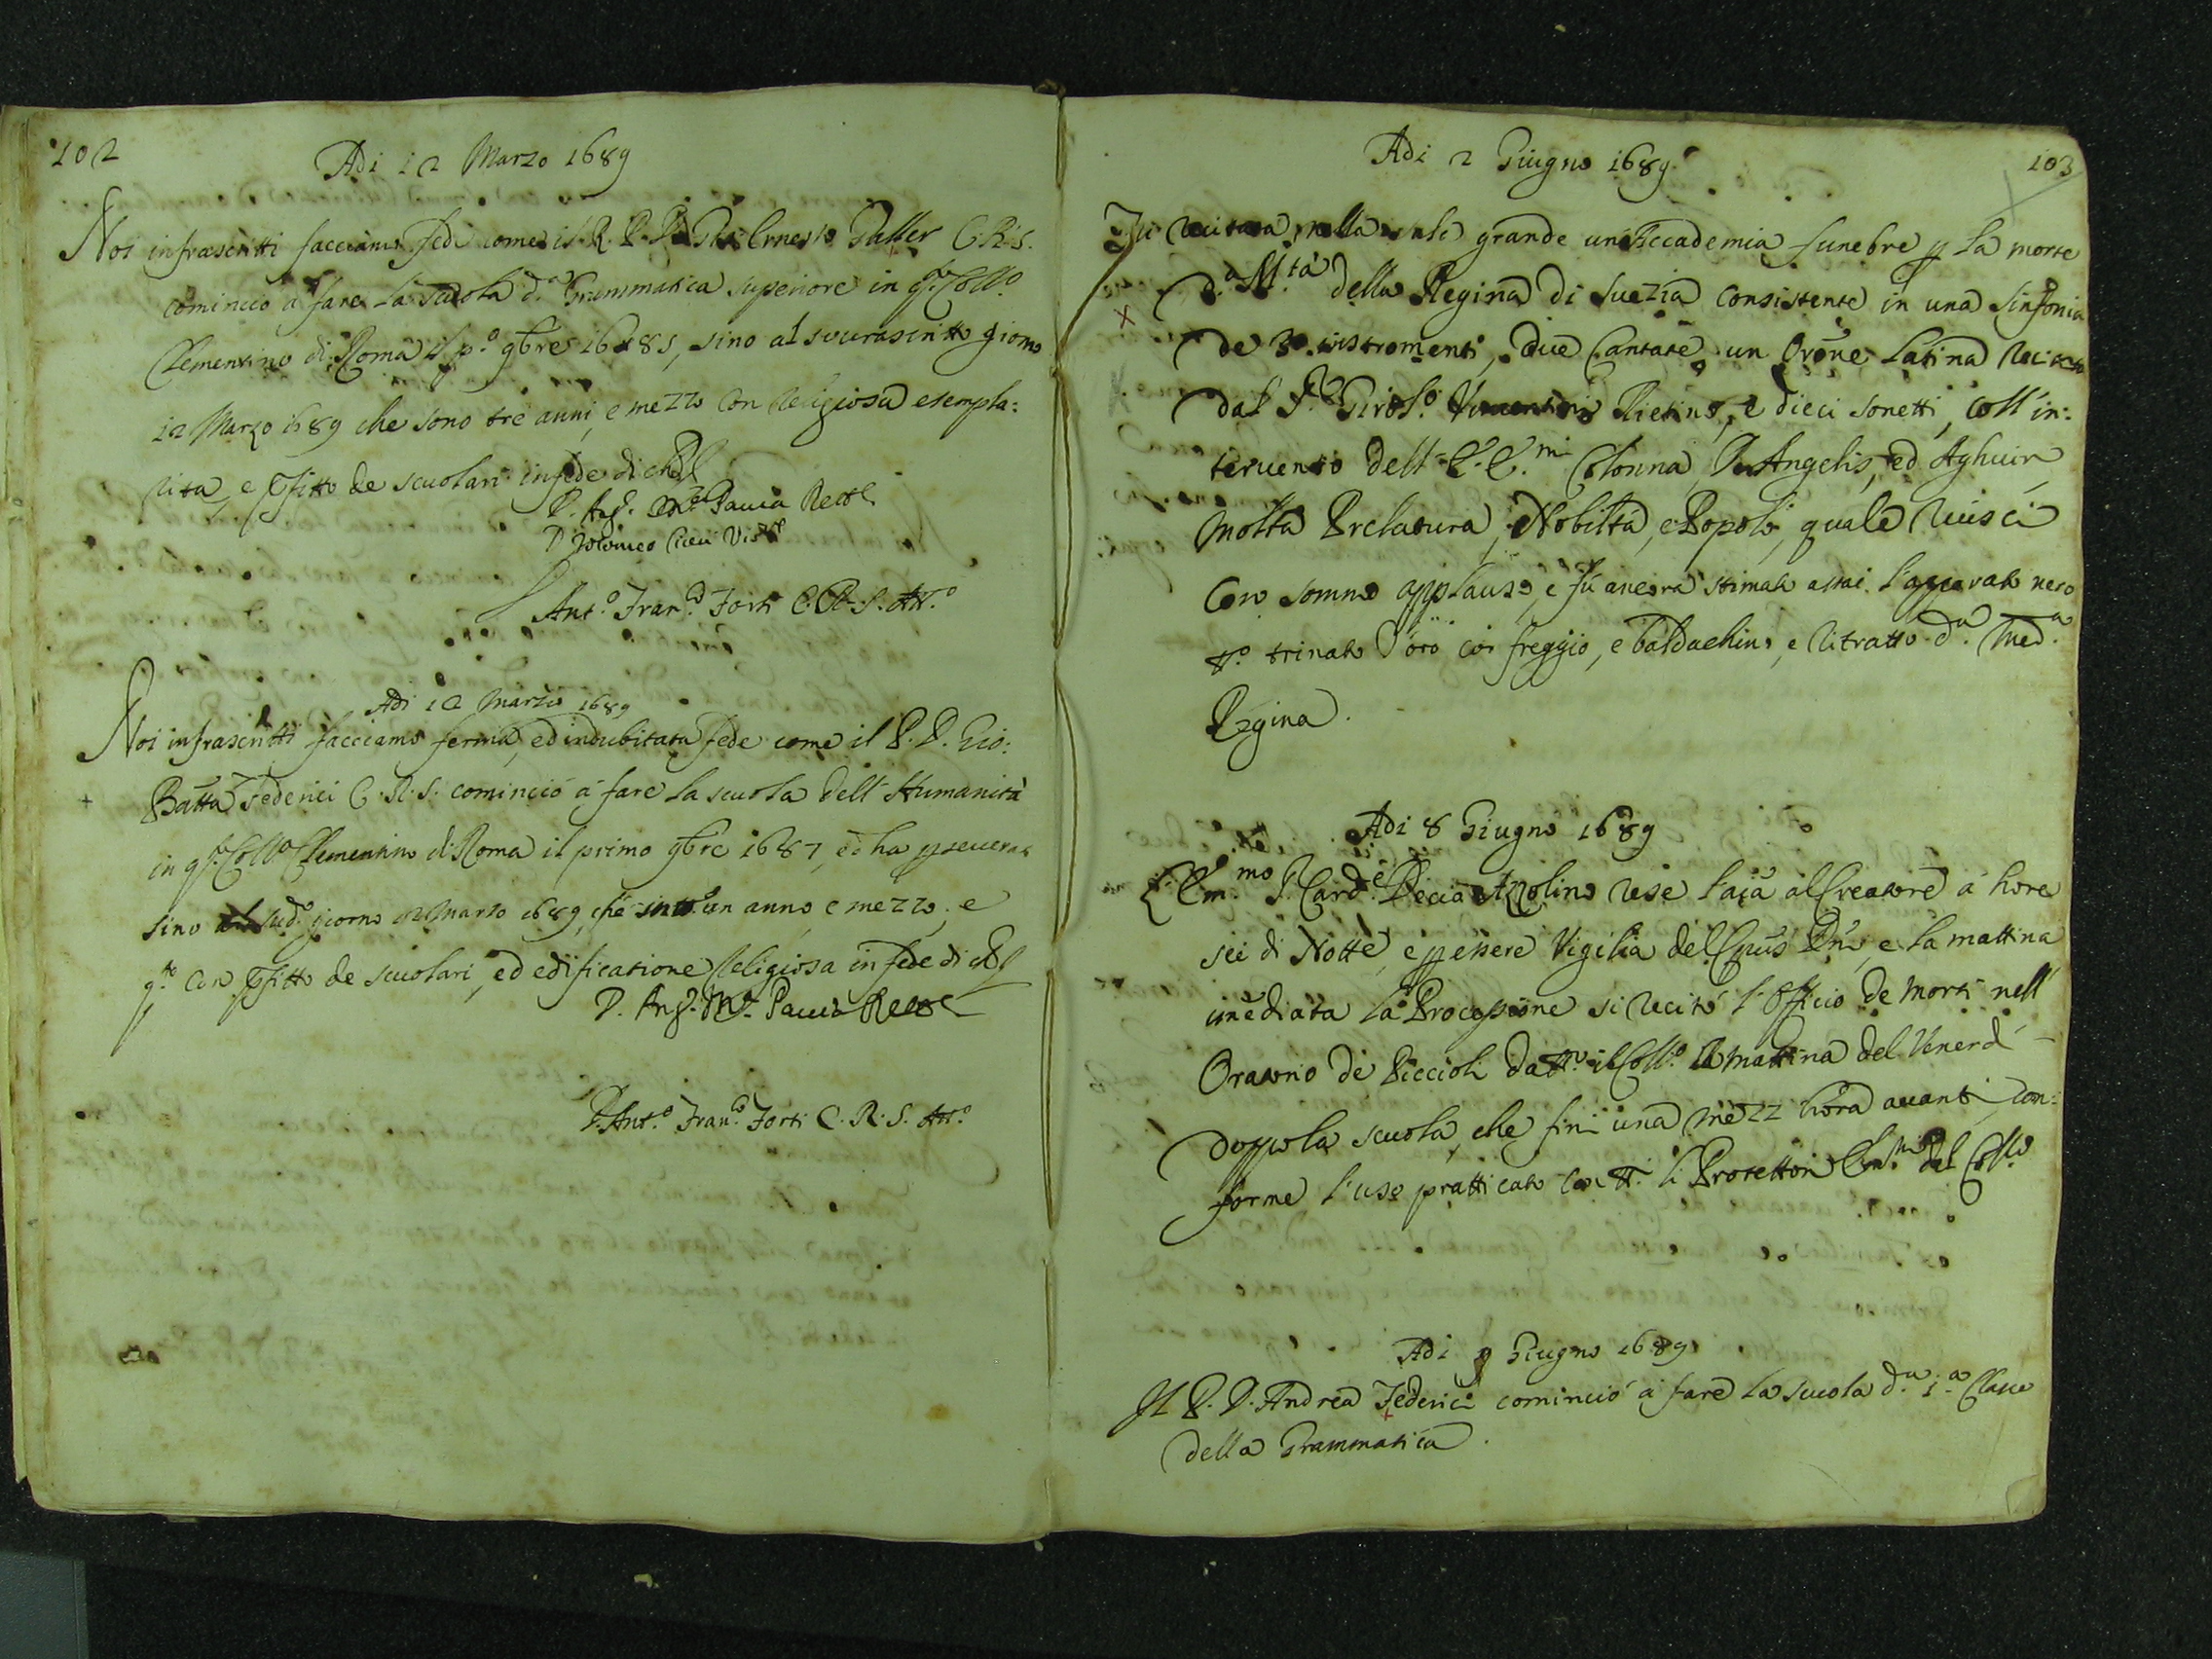 102
Adi 12 Marzo 1689
Noi infrascritti facciamo Fede come il R. P. D. Gio: Ernesto C. R. S.
cominciò a fare la Scuola d.a Grammatica superiore in q.to Coll.o
Clementino di Roma il p.o 9bre 1685, sino al sourascritto giorno
12 Marzo 1689 che sono tre anni, e mezzo con Religiosa esempla:
rita, e pfitto de scuolari in fede di che
P. Ang. M.a Pauia Rett.e
D. Viceret.e
Ant.o Fran.co Forti C. R. S. Att.o
Adi 12 Marzo 1689
Noi infrascritti facciamo ferma, ed indubitata fede come il P. D. Gio:
Batta Federici C. R. S. cominciò à fare la scuola dell'Humanità
in q.to Coll.o Clementino di Roma il primo 9bre 1687, ed ha pseuerat
sino al sud.o giorno 12 Marzo 1689, che sono un anno, e mezzo, e
q.to con pfitto de scuolari, ed edificatione Religiosa in fede di che
D. Ang. M.a Pauia Rett.e
D. Ant.o Fran.co Forti C. R. S. Att.o
103
Adi 2 Giugno 1689
Fù recitata nella sala grande un'Accademia funebre p la morte
d.a M.tà della Regina di Suezia consistente in una Sinfonia
de 30 istromenti, due Cantate, un Orõne Latina recitata
dal S.r Girol.o Vincentini Rietino, e dieci sonetti, coll'in:
teruento dell'E.E.mi Colonna, D'Angelis, ed Aghuir
molta Prelatura, Nobiltà, e Popolo, quale riuscì
con sommo applauso, e fù ancora stimato assai l'apparato nero
t.o trinato d'oro con freggio, e baldachino, e ritratto d.a med.a
Regina.
Adi 8 Giugno 1689
L'Em.mo S. Card.le Decio Azzolino rese l'aĩa al Creatore à hore
sei di Notte, e p essere Vigilia del Cpus Dñi, e la mattina
imẽdiata la Processione si recitò l'Officio de Morti nell'
Oratorio de Piccioli da tt.o il Coll.o la mattina del Venerdì
doppo la scuola, che finì una mezz'hora auanti, con:
forme l'uso pratticato con tt.i li Protettori Em.mi del Coll.o
Adi 9 Giugno 1689
Il P. D. Andrea Federici cominciò à fare la scuola d.a 1.a Classe
della Grammatica.